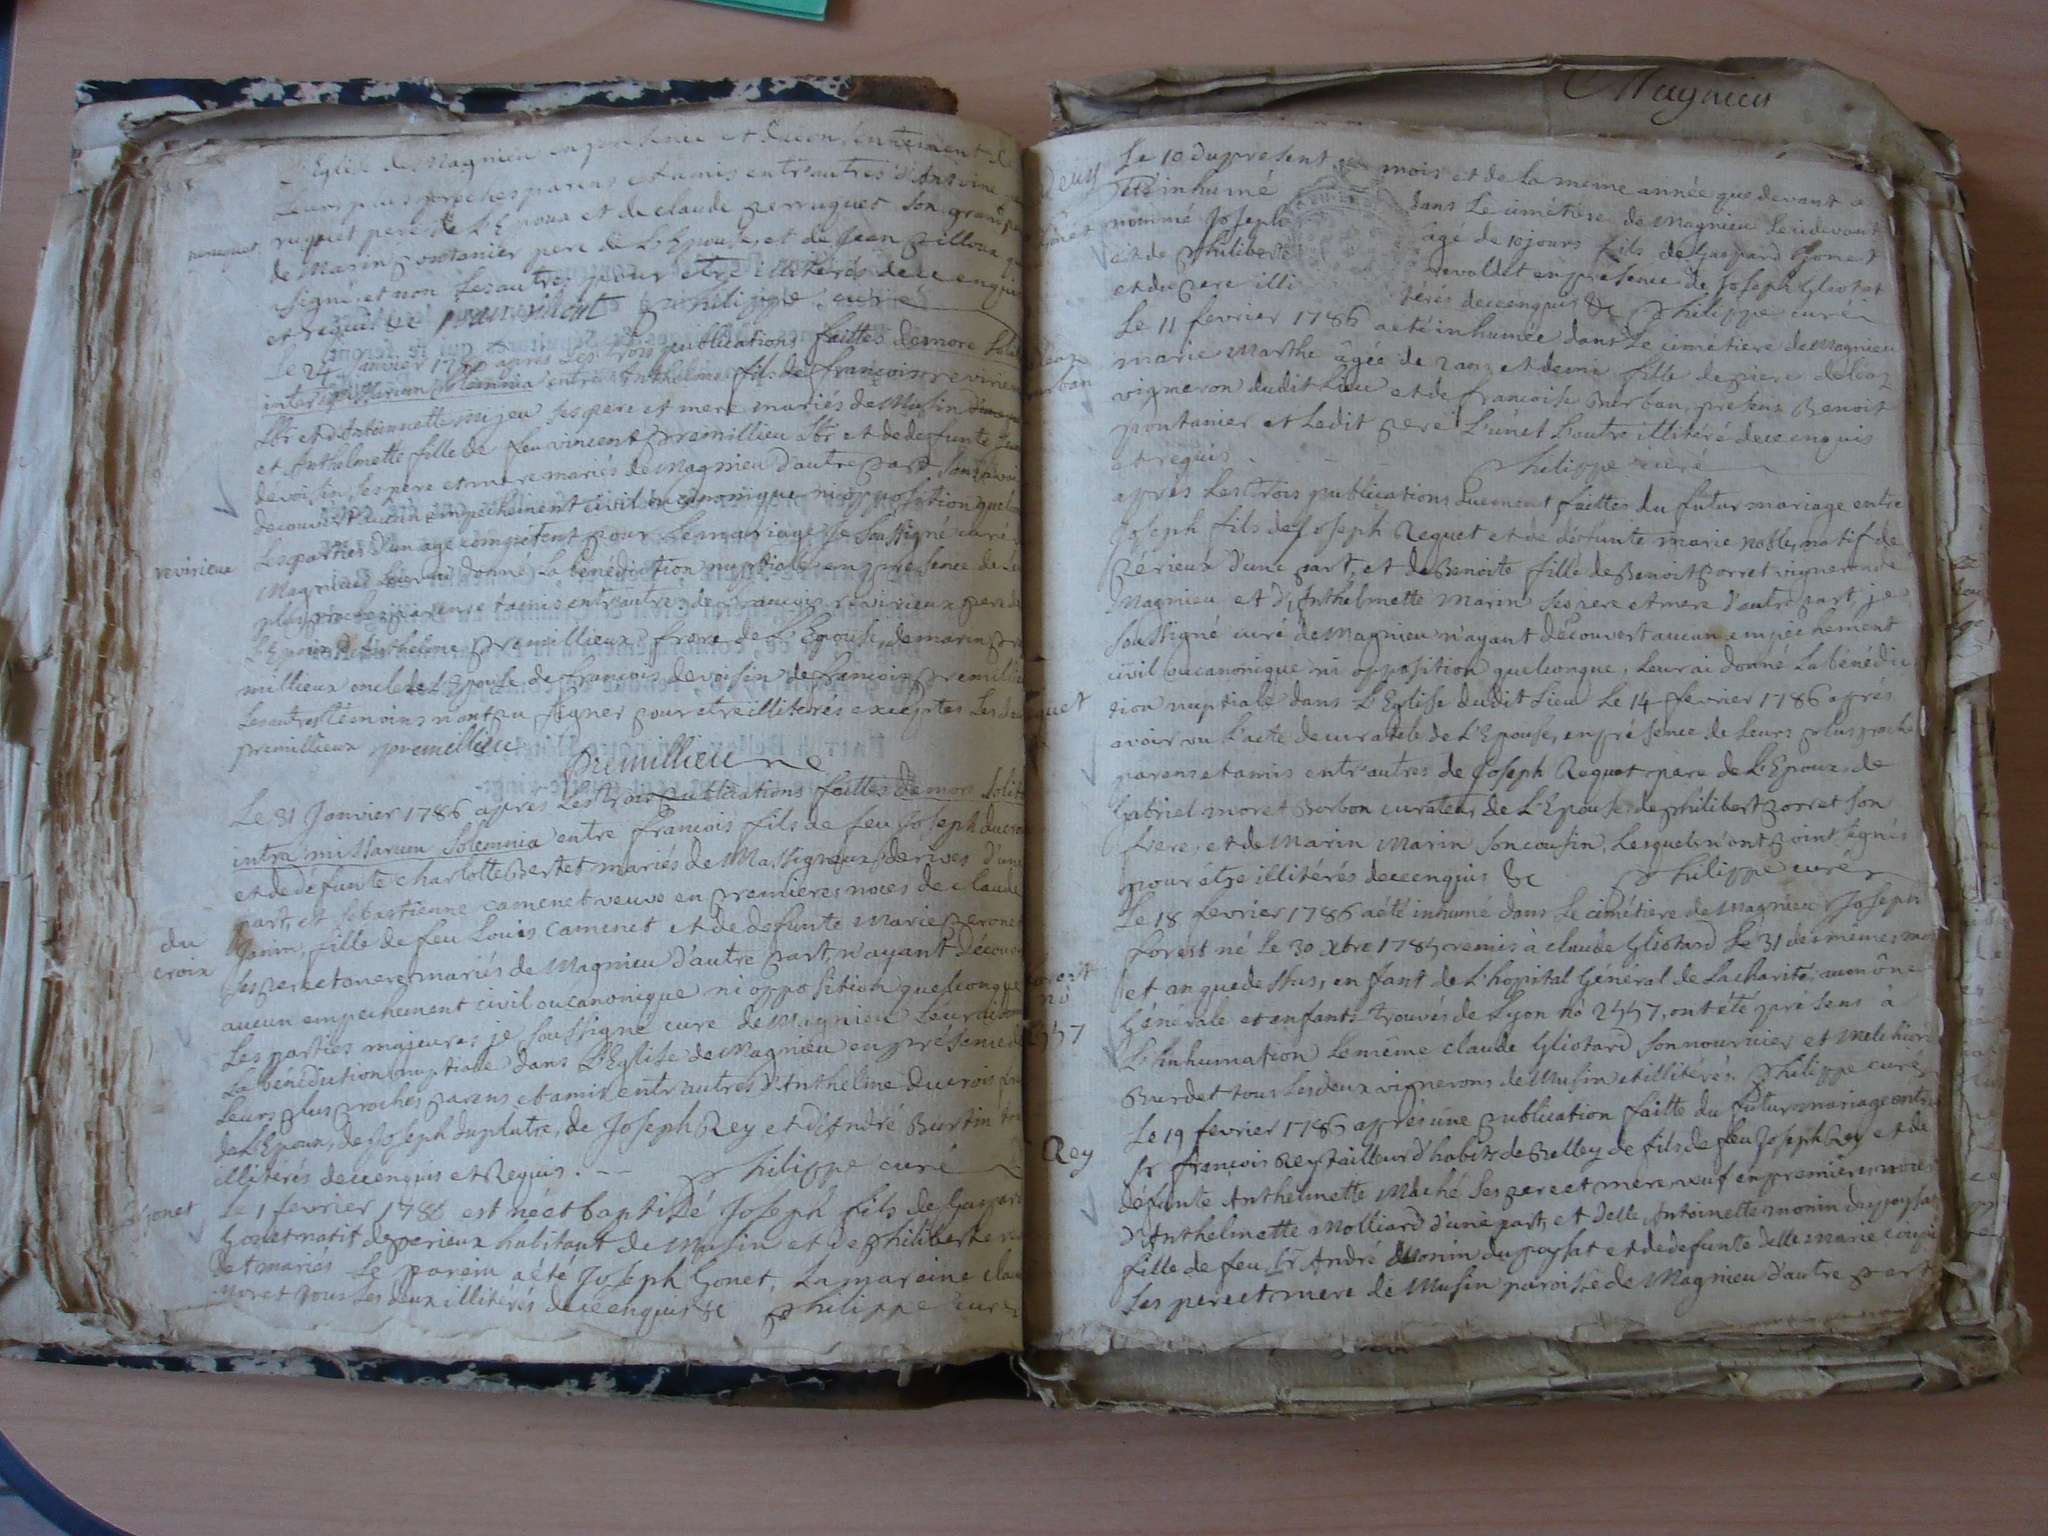 L'Eglise de Magnieu en presence et du consentement de
leurs plus proches parens et amis entr'autres d'Antoine
perruquet
ruquet pere de L'Epoux et de claude perruquet son grand
de Marin pontanier pere de L'Epouse, et de Jean pilloux qui
signé et non les autres pour etre illiterés de ce enquis
et requis &c philippe curé
Le 24 Janvier 1786 apres les trois publications faittes de more solito
inter missarum solemnia entre Anthelme fils de françois revirieux
et d'Antoinette mijeu ses pere et mere mariés de Musin d'une part
et Anthelmette fille de feu vincent premillieu et de defunte
devoisin, ses pere et mere mariés de Magnieu d'autre part
decouvert aucun empechement civil ou canonique ni opposition quelconque
revirieux
Les parties d'un age compétent pour le mariage Je soussigné curé de
Magnieu leur ai donné la bénédiction nuptiale en presence de leurs
plus proches parens et amis entr'autres de françois revirieux pere de
L'Epoux, d'Anthelme premillieux frere de L'Epouse, de marin pre
millieux oncle de L'Epouse de françois devoisin de françois premillieux
Les autres temoins n'ont pu signer pour etre illiterés exceptes les deux
premillieux premillieu
premillieu
Le 31 Janvier 1786 apres les trois publications faittes de more solito
intra missarum solemnia entre francois fils de feu Joseph ducroix
et de défunte charlotte Bertet mariés de Massigneux derives d'une
part, et sebastienne camenet veuve en premieres noces de claude
du
croix
Janin, fille de feu Louis camenet et de defunte Marie peronet
ses pere et mere mariés de Magnieu d'autre part, n'ayant découvert
aucun empechement civil ou canonique ni opposition quelconque
Les parties majeures je soussigné curé de Magnieu leur ai donné
la bénédiction nuptiale dans L'Eglise de Magnieu en présence de
Leurs plus proches parens et amis entr'autres d'Anthelme ducroix
de L'Epoux, de Joseph duplutre, de Joseph Rey et d'André Burtin
illitérés de ce enquis et Requis. philippe curé
gonet
Le 1 fevrier 1786 est né et baptisé Joseph fils de Gaspard
Gonet natif de perieux habitant de Musin et de philiberte re
det mariés Le parein a été Joseph Gonet, la mareine claud
moret tous les deux illitérés de ce enquis &c philippe curé
Magnieu
Le 10 du present mois et de la meme année que devant a
été inhumé dans Le cimétiere de Magnieu le cidevant
gonet
nommé Joseph âgé de 10 jours fils de Gaspard Gonet
et de philiberte revoldet en presence de Joseph Gliotat
et du pere illitérés de ce enquis &c philippe curé
Le 11 fevrier 1786 a eté inhumée dans Le cimétiere de Magnieu
marie Marthe âgée de 2 ans et demi fille de piere deléaz
burban
vigneron dudit Lieu et de francoise Burban, presens Benoit
pontanier et Ledit pere L'un et L'autre illitéré de ce enquis
et requis. philippe curé
apres Les trois publications duement faittes du futur mariage entre
Joseph fils de Joseph Requet et de défunte marie noble, natif de
périeux d'une part, et de Benoite fille de Benoit porret vigneron de
Magnieu et d'Anthelmette Marin ses pere et mere d'autre part, je
soussigné curé de Magnieu n'ayant découvert aucun empéchement
civil ou canonique ni opposition quelconque, leur ai donné la bénédic
requet
tion nuptiale dans L'Eglise dudit Lieu Le 14 fevrier 1786 aprés
avoir vu L'acte de curatele de L'Epouse, en présence de Leurs plus proches
parens et amis entr'autres de Joseph Requet pere de L'Epoux, de
Gabriel moret Borbon curateur de L'Epouse, de philibert porret son
frere, et de Marin Marin son cousin, Lesquels n'ont point signés
pour étre illitérés de ce enquis &c philippe curé
Le 18 fevrier 1786 a été inhumé dans Le cimétiere de Magnieu Joseph
forest né le 30 xbre 1785 remis à claude Gliotard Le 31 des mêmes mois
forest
no
2557
et an que dessus, enfant de L'hopital Général de la charité, aumône
Générale et enfants trouvés de Lyon no 2557, ont été presens à
L'Inhumation Le même claude Gliotard son nourricier et Melchior
Burdet tous les deux vignerons de Musin et illitérés. philippe curé
Le 19 fevrier 1786 après une publication faitte du futur mariage entre
Rey
sr. françois Rey tailleur d'habits de Belley de fils de feu Joseph Rey et de
défunte Anthelmette Maché ses pere et mere, veuf en premieres noces
d'Anthelmette Molliard d'une part, et Delle Antoinette monin du poysat
fille de feu sr. André Monin du poysat et de defunte delle marie
ses pere et mere de Musin paroisse de Magnieu d'autre part